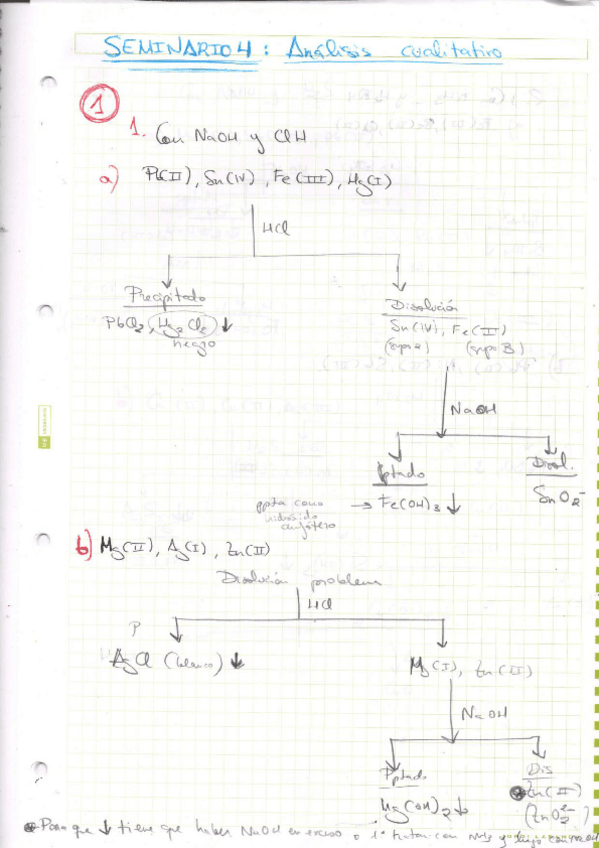 SEMINARIO 4 : Análisis cualitativo
1
1. Con NaOH y ClH
a) Pb(II), Sn(IV), Fe(III), Hg(I)
HCl
Precipitado
Disolución
PbCl2, Hg2Cl2 ↓
Sn(IV), Fe(III)
negro
(grupo 2) (grupo 3)
NaOH
Pptado
Disol.
ppta como → Fe(OH)3 ↓
SnO2-
hidróxido
anfótero
b) Mg(II), Ag(I), Zn(II)
Disolución problema
HCl
P
AgCl (blanco) ↓
Mg(I), Zn(II)
NaOH
Pptado
Dis
Mg(OH)2 ↓
Zn(II)
(ZnO2 2-)
Para que ↓ tiene que haber NaOH en exceso o 1º tratar con NH3 y luego con NaOH